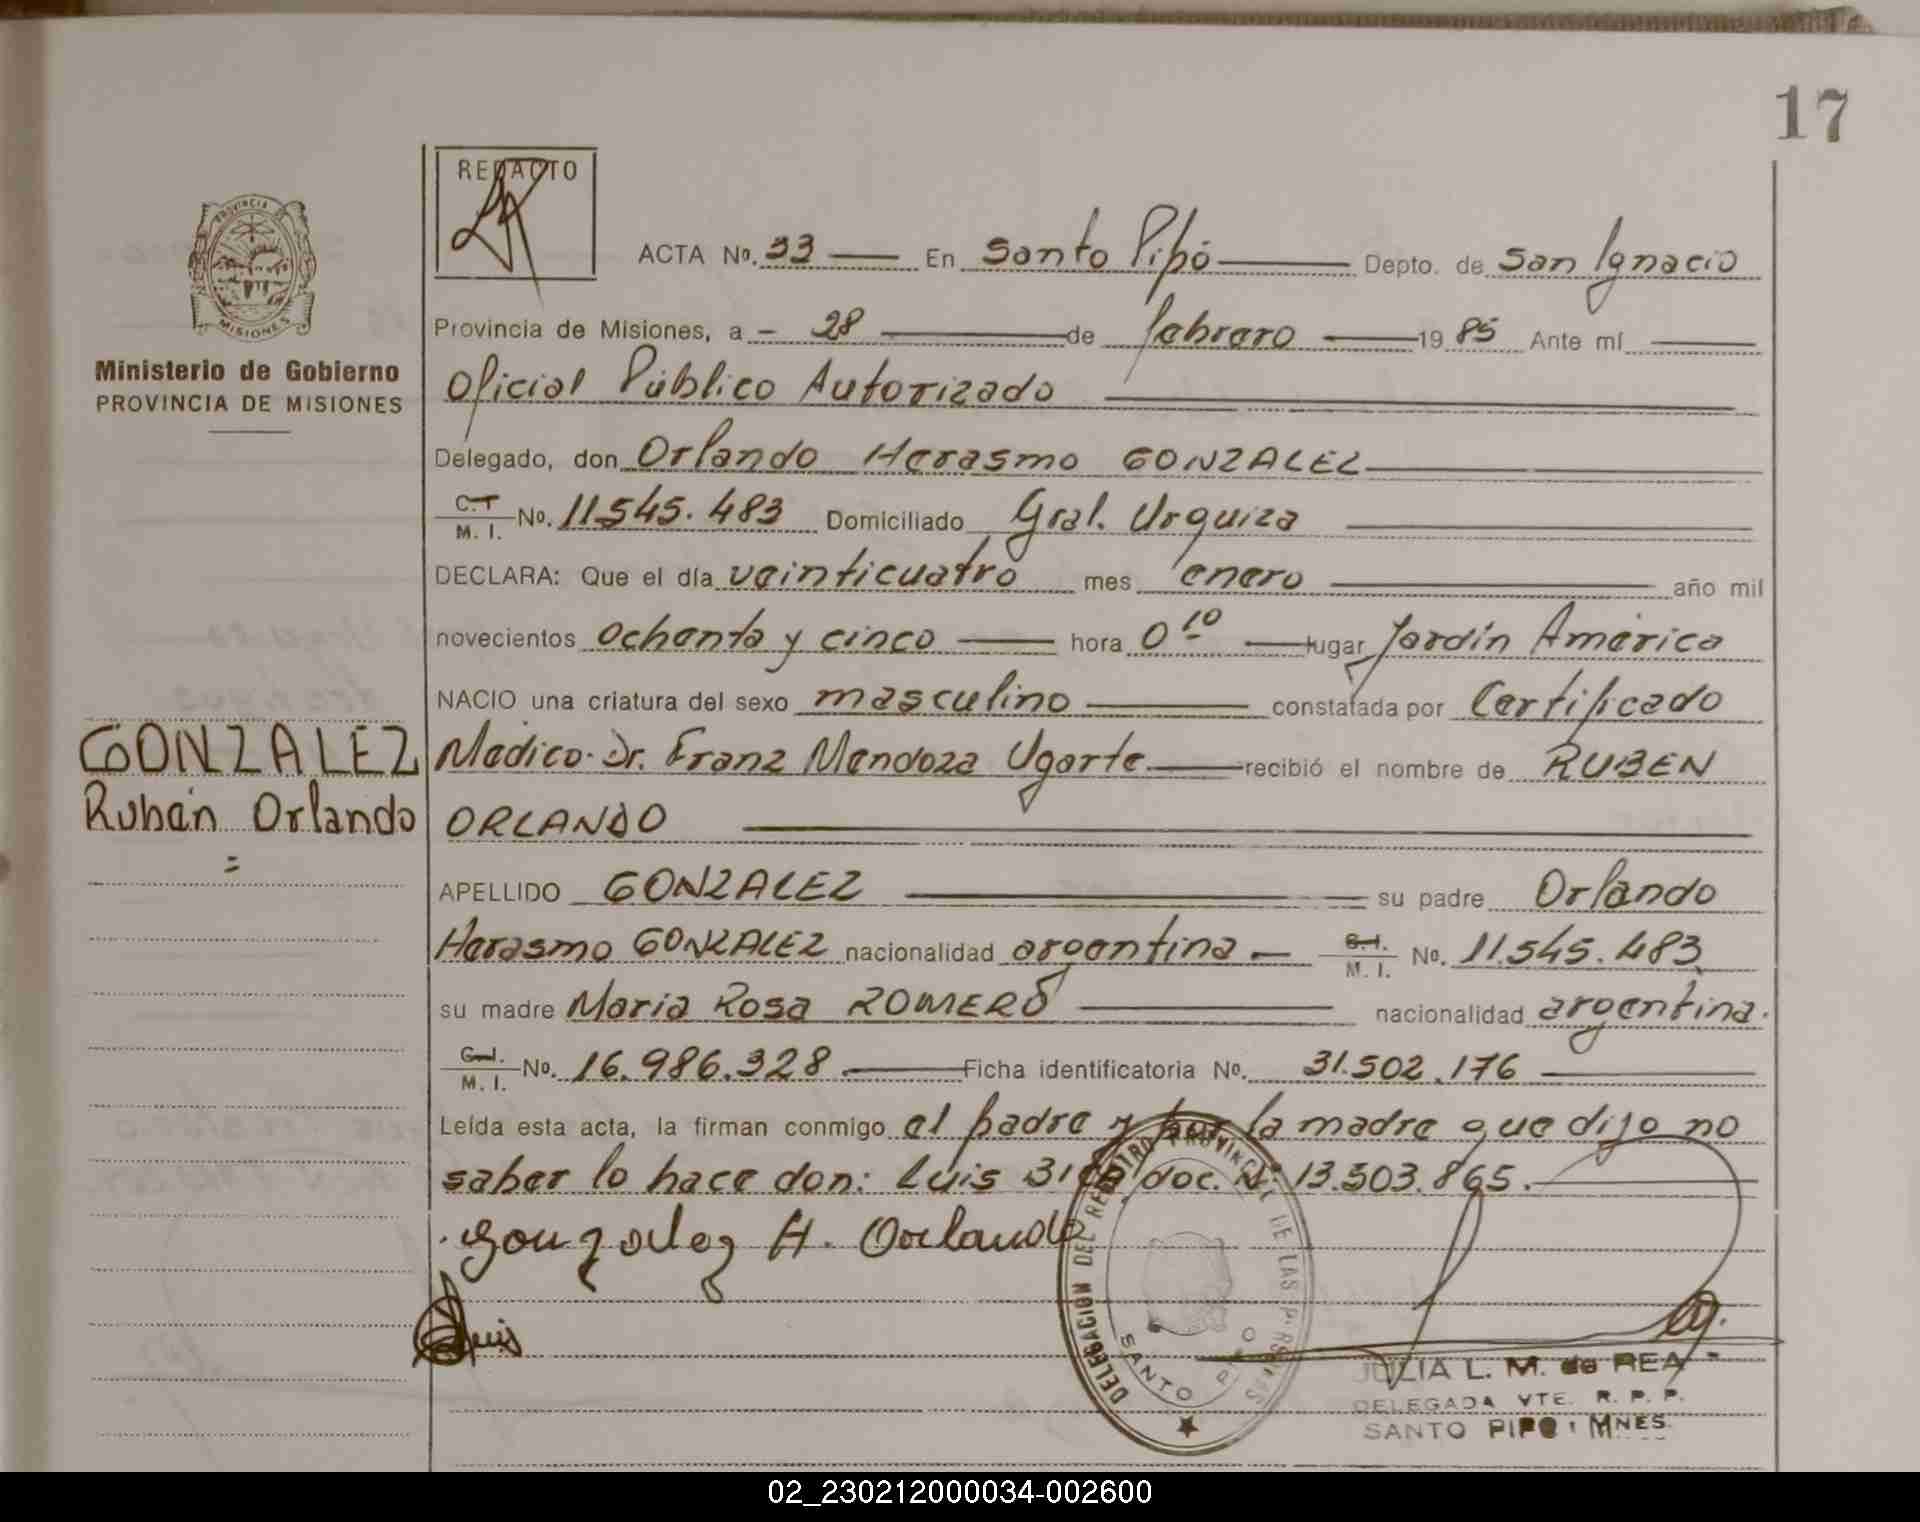 17
REDACTO
ACTA Nº. 33 En Santo Pipó Depto. de San Ignacio
Provincia de Misiones, a - 28 de febrero 1985 Ante mí
Ministerio de Gobierno
PROVINCIA DE MISIONES
Oficial Público Autorizado
Delegado, don Orlando Herasmo GONZALEZ
C.I. M. I. No. 11.545.483 Domiciliado Gral. Urquiza
DECLARA: Que el día veinticuatro mes enero año mil
novecientos ochenta y cinco hora 0 10 lugar Jardín América
NACIO una criatura del sexo masculino constatada por Certificado
Medico. Dr. Franz Mendoza Ugarte recibió el nombre de RUBEN
ORLANDO
GONZALEZ
Rubén Orlando
=
APELLIDO GONZALEZ su padre Orlando
Herasmo GONZALEZ nacionalidad argentina C.I. M. I. No. 11.545.483
su madre María Rosa ROMERO nacionalidad argentina.
C.I. M. I. No. 16.986.328 Ficha identificatoria No. 31.502.176
Leída esta acta, la firman conmigo el padre y por la madre que dijo no
saber lo hace don: Luis doc. N: 13.503.865.
Gonzalez H. Orlando
Luis
DELEGACION DEL REGISTRO PROVINCIAL DE LAS PERSONAS
SANTO PIPO
JULIA L. M. de REA
DELEGADA VTE. R. P. P.
SANTO PIPO, MNES.
PROVINCIA DE
MISIONES
02_230212000034-002600